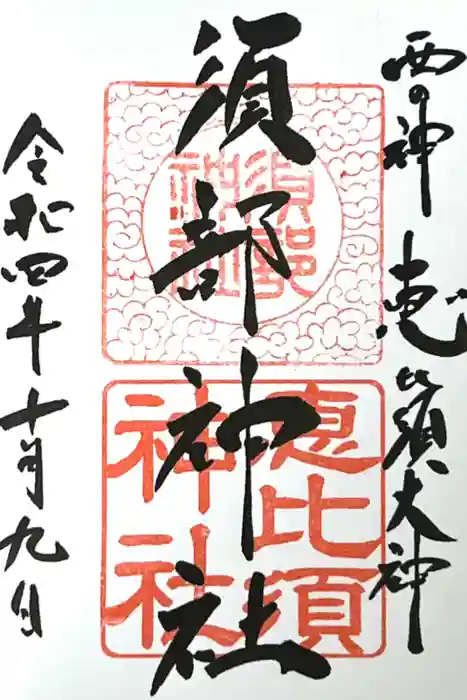 西の神 恵比須大神
須部神社
須部
神社
恵比須
神社
令和四年十月九日